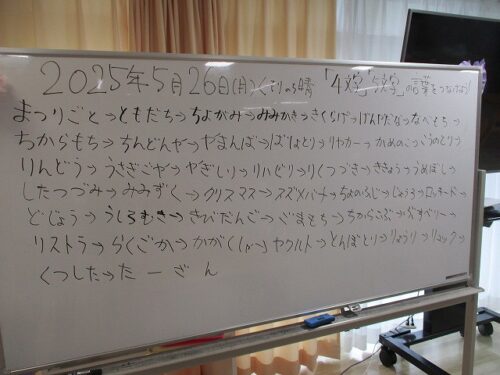 2025年5月26日(月)くもりのち晴 「4文字」「5文字」の言葉をつなげよう!
まつりごと→ともだち→ちよがみ→みみかき→きくらげ→げんかだな→なべもち→
ちからもち→ちんどんや→やまんば→ばばとり→リヤカー→かめのこ→こうのとり→
りんどう→うさぎごや→やぎしい→リハビリ→りくつづき→ききょう→うめぼし→
したつづみ→みみずく→クリスマス→スズメバチ→ちよのふじ→じょうろ→ロッキード→
どじょう→うしろむき→きびだんご→ごまもち→ちからこぶ→ぶすべりー→
リストラ→らくごか→かがく(しゃ)→ヤクルト→とんぼとり→りょうり→リュック→
くつした→たーざん